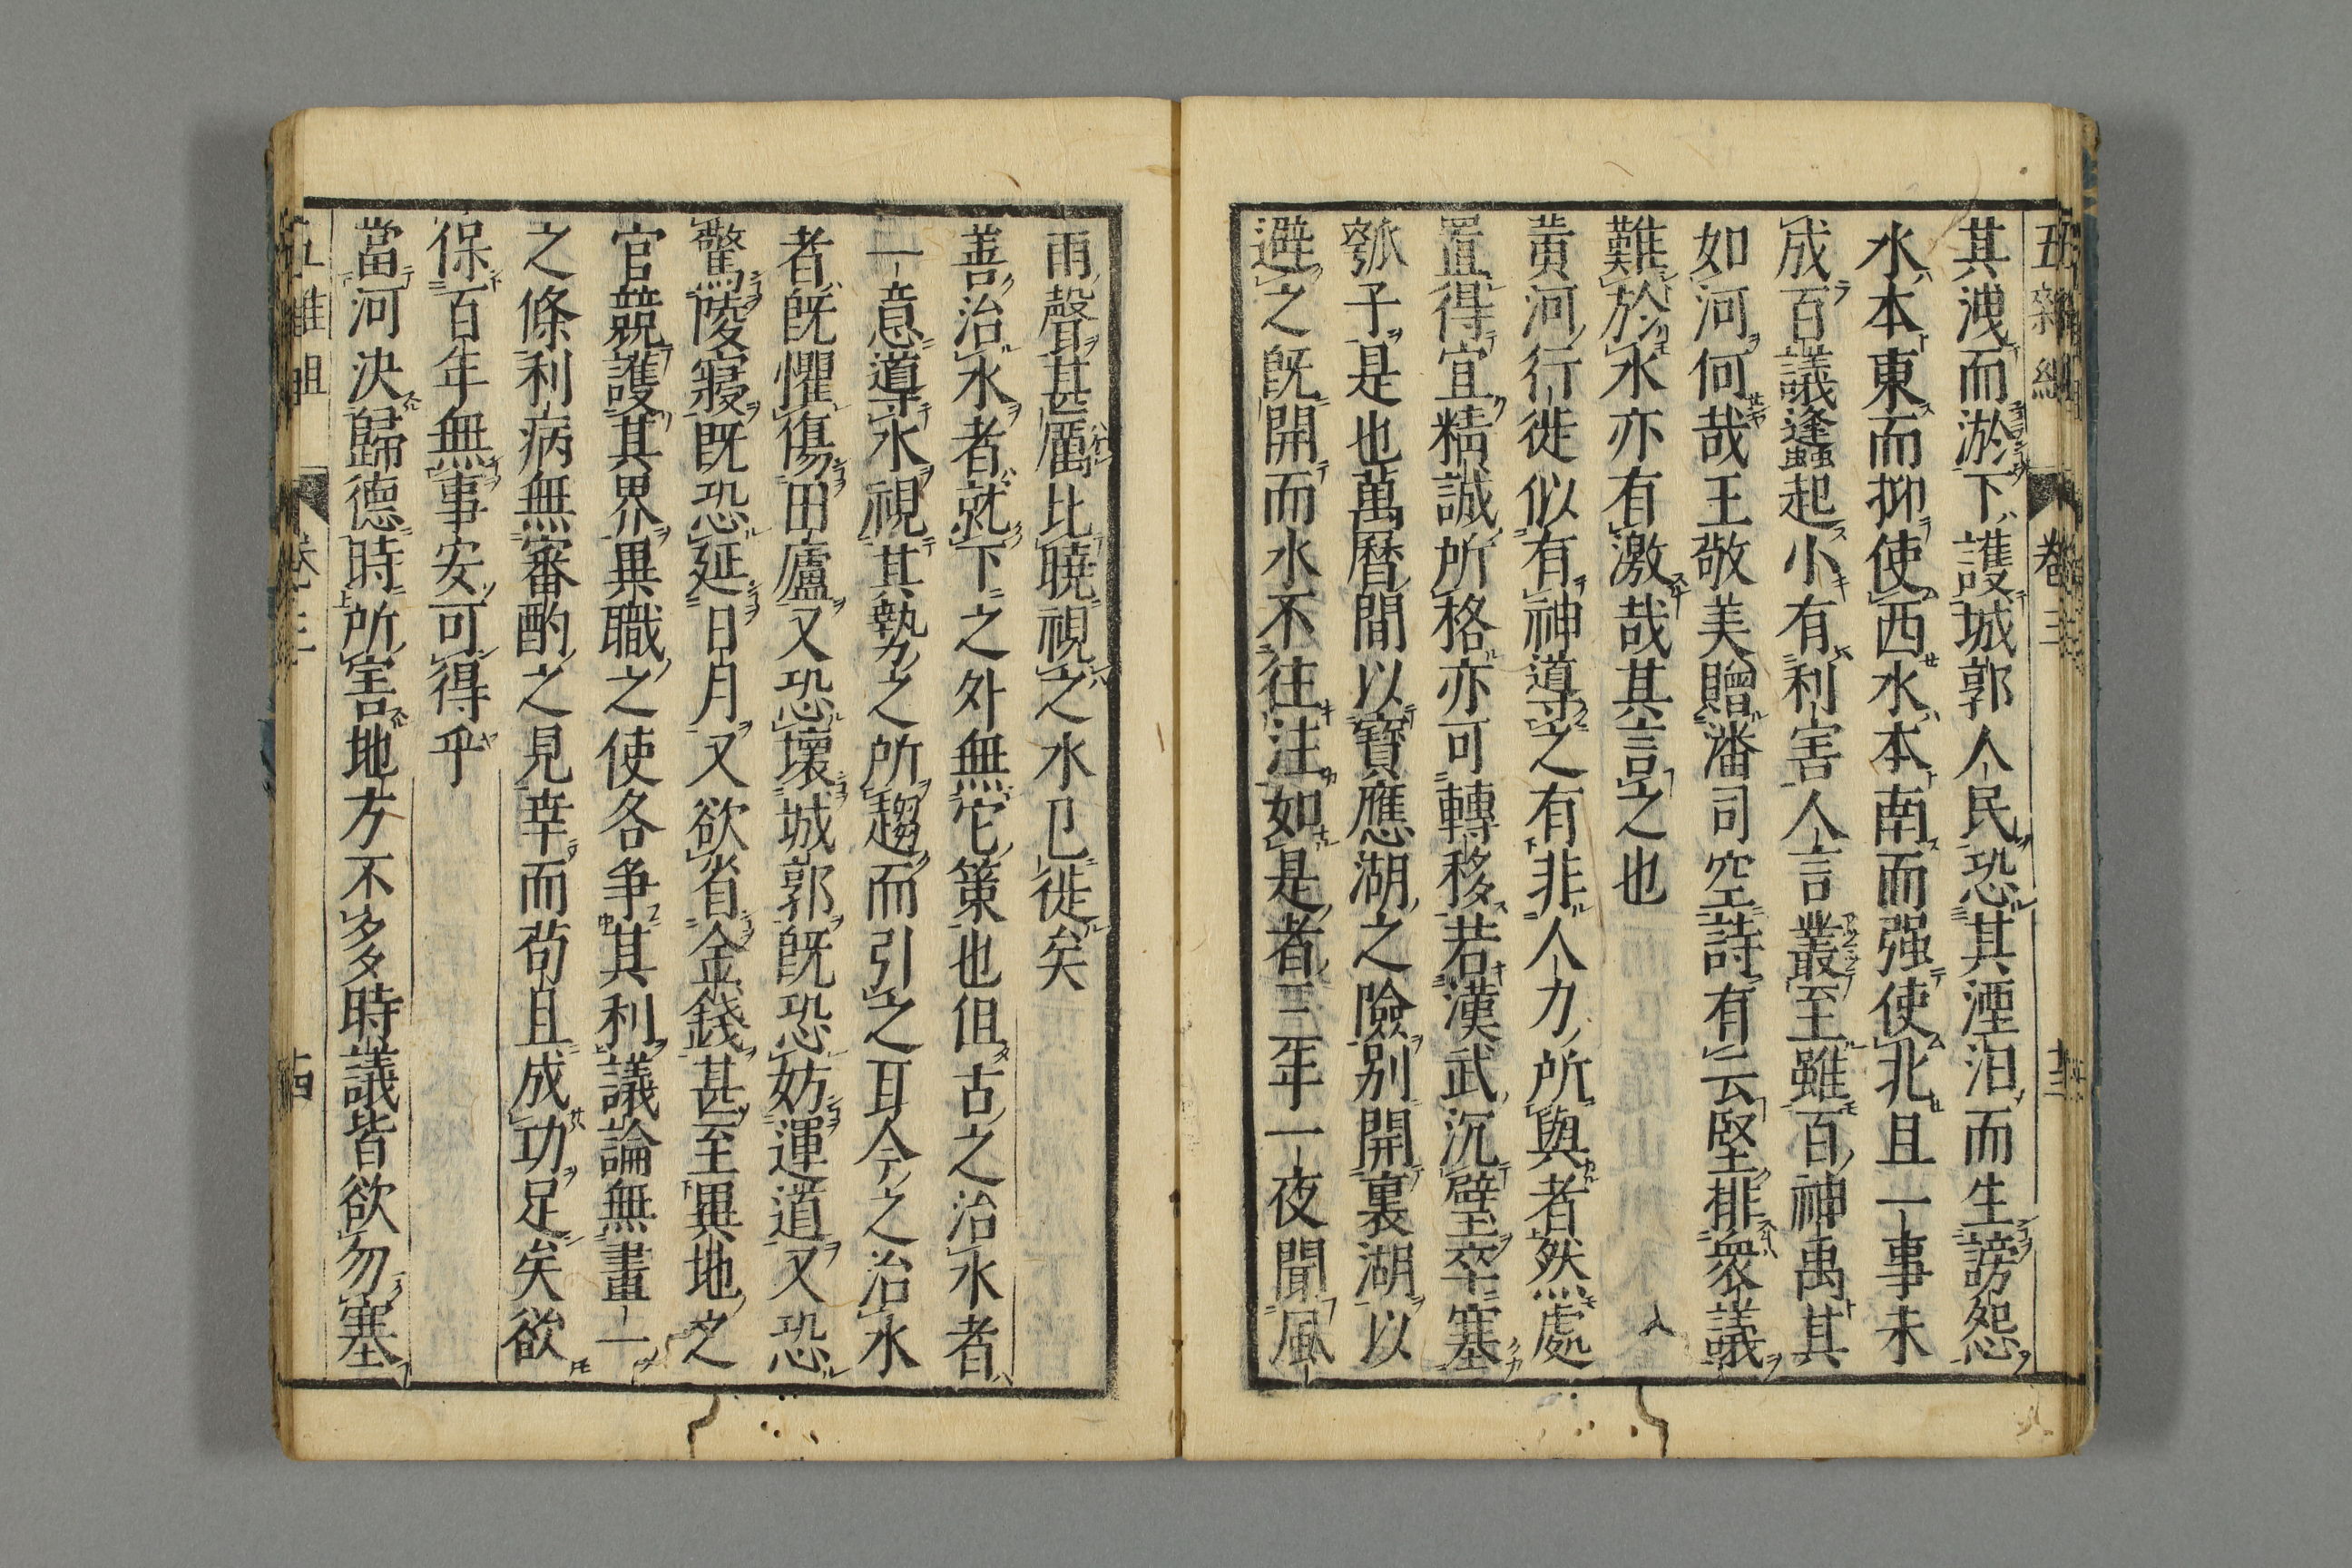 五雜組 卷三 十三
其洩而淤下護城郭人民恐其湮汨而生謗怨
水本東而抑使西水本南而强使北且一事未
成百議蠭起小有利害人言叢至雖百神禹其
如河何哉王敬美贈潘司空詩有云堅排衆議
難於水亦有激哉其言之也
黃河行徙似有神導之有非人力所與者然處
置得宜精誠所格亦可轉移若漢武沉璧卒塞
瓠子是也萬曆間以寶應湖之險別開裏湖以
避之旣開而水不往注如是者三年一夜聞風
雨聲甚厲比曉視之水已徙矣
善治水者就下之外無它策也但古之治水者
一意導水視其埶力之所趨而引之耳今之治水
者旣懼傷田廬又恐壞城郭旣恐妨運道又恐
驚陵寢旣恐延日月又欲省金錢甚至異地之
官競護其界異職之使各爭其利議論無畫一
之條利病無審酌之見幸而苟且成功足矣欲
保百年無事安可得乎
當河決歸德時所害地方不多時議皆欲勿塞
五雜組 卷三 十四